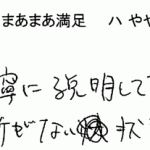 まあまあ満足 ハ やや
寧に説明して
ぜない 状